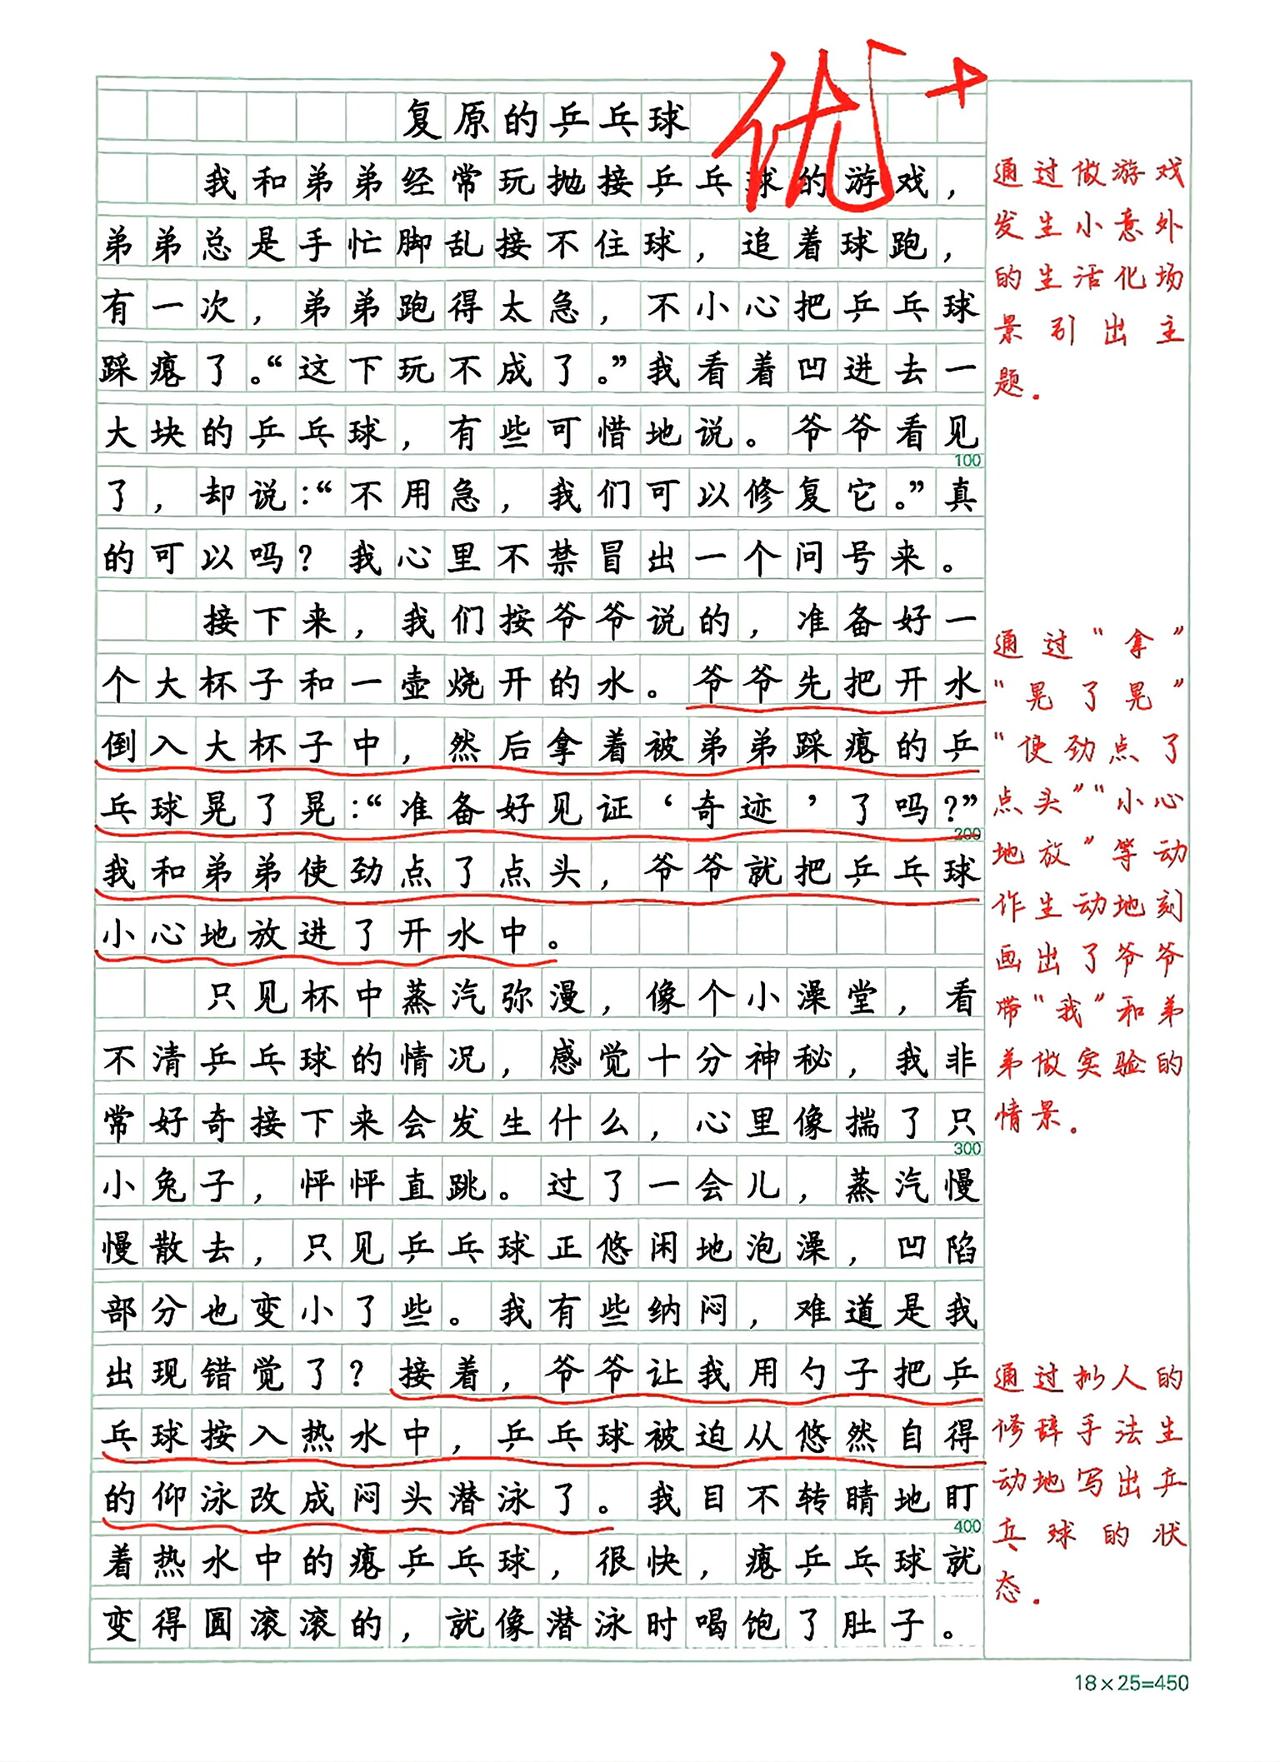 复原的乒乓球
优+
我和弟弟经常玩抛接乒乓球的游戏，
弟弟总是手忙脚乱接不住球，追着球跑，
有一次，弟弟跑得太急，不小心把乒乓球
踩瘪了。“这下玩不成了。”我看着凹进去一
大块的乒乓球，有些可惜地说。爷爷看见
100
了，却说：“不用急，我们可以修复它。”真
的可以吗？我心里不禁冒出一个问号来。
接下来，我们按爷爷说的，准备好一
个大杯子和一壶烧开的水。爷爷先把开水
倒入大杯子中，然后拿着被弟弟踩瘪的乒
乓球晃了晃：“准备好见证‘奇迹’了吗？”
200
我和弟弟使劲点了点头，爷爷就把乒乓球
小心地放进了开水中。
只见杯中蒸汽弥漫，像个小澡堂，看
不清乒乓球的情况，感觉十分神秘，我非
常好奇接下来会发生什么，心里像揣了只
300
小兔子，怦怦直跳。过了一会儿，蒸汽慢
慢散去，只见乒乓球正悠闲地泡澡，凹陷
部分也变小了些。我有些纳闷，难道是我
出现错觉了？接着，爷爷让我用勺子把乒
乓球按入热水中，乒乓球被迫从悠然自得
的仰泳改成闷头潜泳了。我目不转睛地盯
400
着热水中的瘪乒乓球，很快，瘪乒乓球就
变得圆滚滚的，就像潜泳时喝饱了肚子。
18×25=450
通过做游戏
发生小意外
的生活化场
景引出主
题．
通过“拿”
“晃了晃”
“使劲点了
点头”“小心
地放”等动
作生动地刻
画出了爷爷
带“我”和弟
弟做实验的
情景．
通过拟人的
修辞手法生
动地写出乒
乓球的状
态．